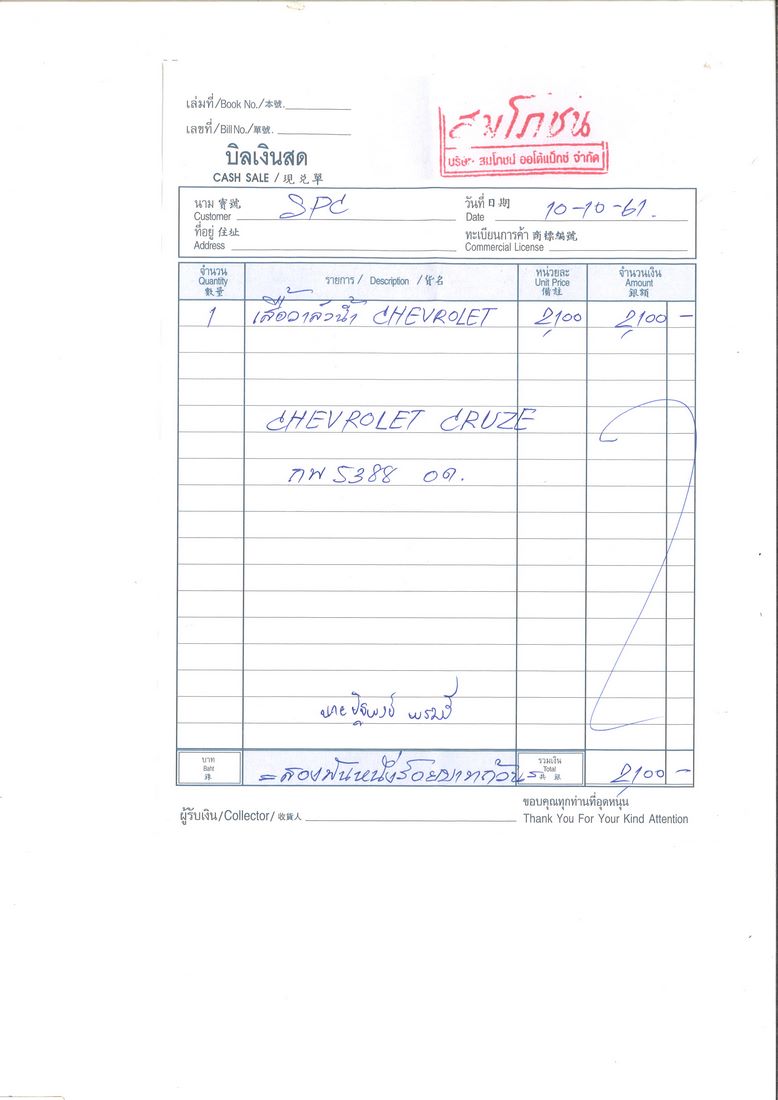 เล่มที่/Book No./本號.
เลขที่/Bill No./單號.
สมโภชน์
บริษัท สมโภชน์ ออโต้แม็กซ์ จำกัด
บิลเงินสด
CASH SALE / 現兌單
นาม 寶號 SPC
Customer
วันที่ 日期 10-10-61.
Date
ที่อยู่ 住址
Address
ทะเบียนการค้า 商標編號
Commercial License
จำนวน รายการ / Description / 貨名 หน่วยละ จำนวนเงิน
Quantity Unit Price Amount
數量 備註 銀額
1 เสื้อวาล์วน้ำ CHEVROLET 2,100 2,100 -
CHEVROLET CRUZE
กพ 5388 
บาท
Baht
銖
= สองพันหนึ่งร้อยบาทถ้วน =
รวมเงิน
Total
共銀
2,100 -
ผู้รับเงิน/Collector/收貨人
ขอบคุณทุกท่านที่อุดหนุน
Thank You For Your Kind Attention